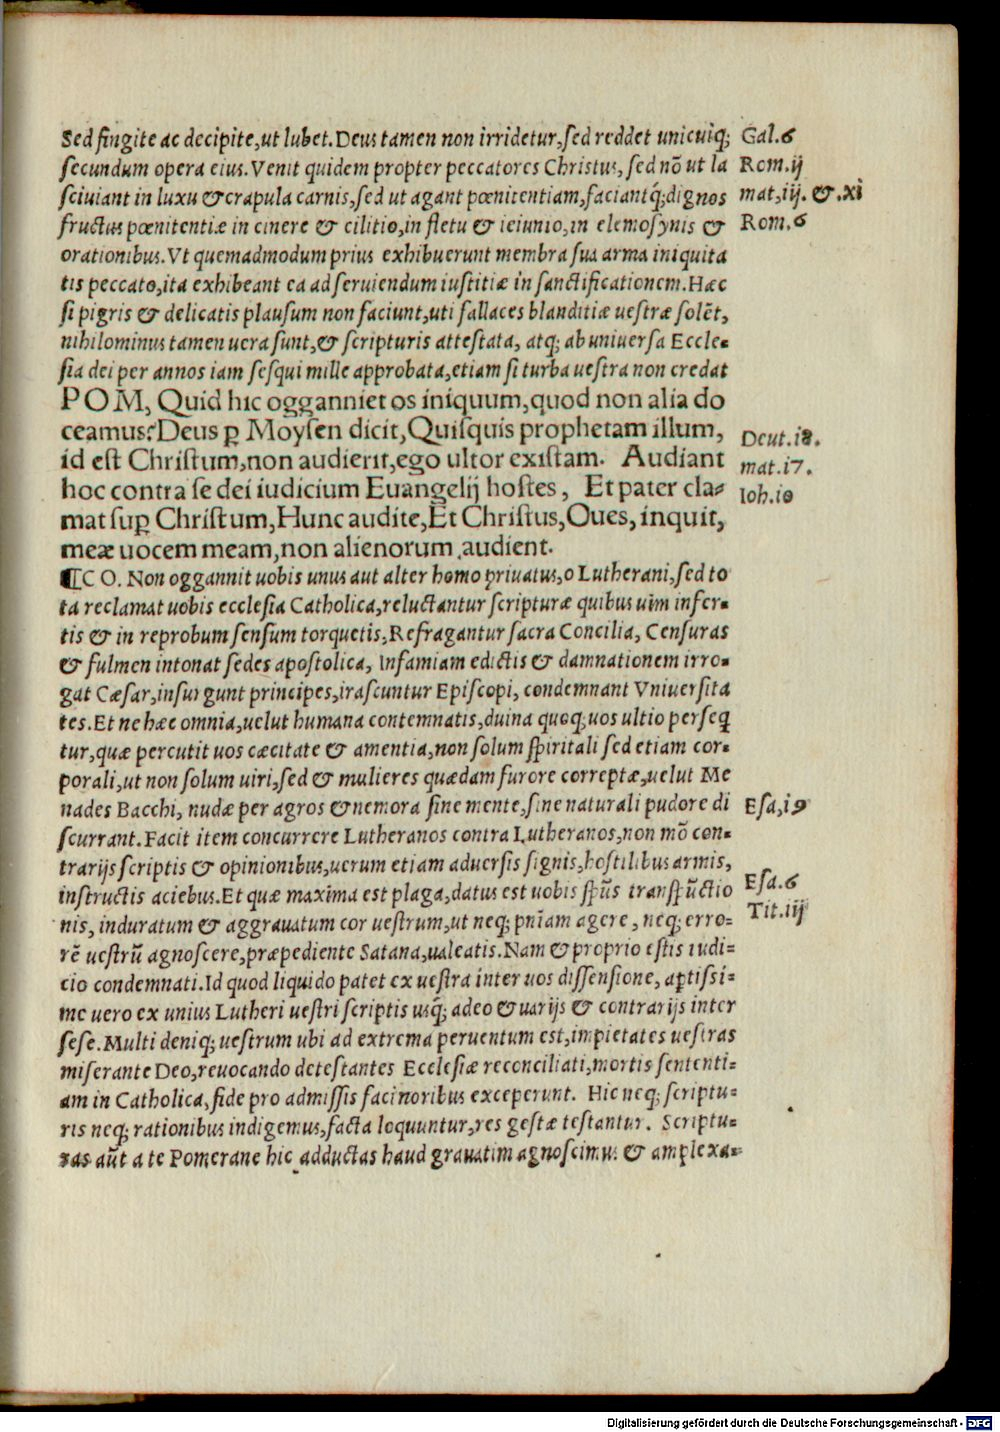 Sed fingite ac decipite,ut lubet.Deus tamen non irridetur,sed reddet unicuiq; Gal.6
secundum opera eius.Venit quidem propter peccatores Christus, sed nõ ut la Rom.ij
sciuiant in luxu & crapula carnis,sed ut agant pœnitentiam,faciantq́;dignos mat,iij. & .xi
fructus pœnitentiæ in cinere & cilitio,in fletu & ieiunio,in elemosynis & Rom.6
orationibus.Vt quemadmodum prius exhibuerunt membra sua arma iniquita
tis peccato,ita exhibeant ea ad seruiendum iustitiæ in sanctificationem.Hæc
si pigris & delicatis plausum non faciunt,uti fallaces blanditiæ uestræ solẽt,
nihilominus tamen uera sunt,& scripturis attestata, atq; ab uniuersa Eccle-
sia dei per annos iam sesqui mille approbata,etiam si turba uestra non credat
POM, Quid hic oggannıet os iniquum,quod non alia do
ceamus? Deus ꝑ Moysen dicit,Quisquis prophetam illum, Deut.i8.
id est Christum,non audierit,ego ultor existam. Audiant mat.i7.
hoc contra se dei iudicium Euangelij hostes, Et pater cla- Ioh.i0
mat suꝑ Christum,Hunc audite,Et Christus,Oues, inquit,
meæ uocem meam,non alienorum audient.
¶CO. Non oggannit uobis unus aut alter homo priuatus,o Lutherani,sed to
ta reclamat uobis ecclesia Catholica,reluctantur scripturæ quibus uim infer-
tis & in reprobum sensum torquetis,Refragantur sacra Concilia, Censuras
& fulmen intonat sedes apostolica, Infamiam edictis & damnationem irro-
gat Cæsar,insurgunt principes,irascuntur Episcopi, condemnant Vniuersita
tes.Et ne hæc omnia,uelut humana contemnatis,diuina quoq;uos ultio perseq̃
tur,quæ percutit uos cæcitate & amentia,non solum spiritali sed etiam cor-
porali,ut non solum uiri,sed & mulieres quædam furore correptæ,uelut Me
nades Bacchi, nudæ per agros & nemora sine mente,sine naturali pudore di Esa,i9
scurrant.Facit item concurrere Lutheranos contra Lutheranos,non mõ con-
trarijs scriptis & opinionibus,uerum etiam aduersis signis,hostilibus armis,
instructis aciebus.Et quæ maxima est plaga,datus est uobis spũs transpũctio Esa.6
nis, induratum & aggrauatum cor uestrum,ut neq; pn̄iam agere, neq; erro- Tit.iij
rẽ uestrũ agnoscere,præpediente Satana,ualeatis.Nam & proprio estis iudi-
cio condemnati.Id quod liquido patet ex uestra inter uos dissensione, aptissi-
me uero ex unius Lutheri uestri scriptis usq́; adeo & uarijs & contrarijs inter
sese.Multi deniq; uestrum ubi ad extrema peruentum est,impietates uestras
miserante Deo,reuocando detestantes Ecclesiæ reconciliati,mortis sententi-
am in Catholica,fide pro admissis facinoribus exceperunt. Hic neq; scriptu-
ris neq; rationibus indigemus,facta loquuntur,res gestæ testantur. Scriptu-
ras aũt a te Pomerane hic adductas haud grauatim agnoscimus & amplexa-
Digitalisierung gefördert durch die Deutsche Forschungsgemeinschaft - DFG